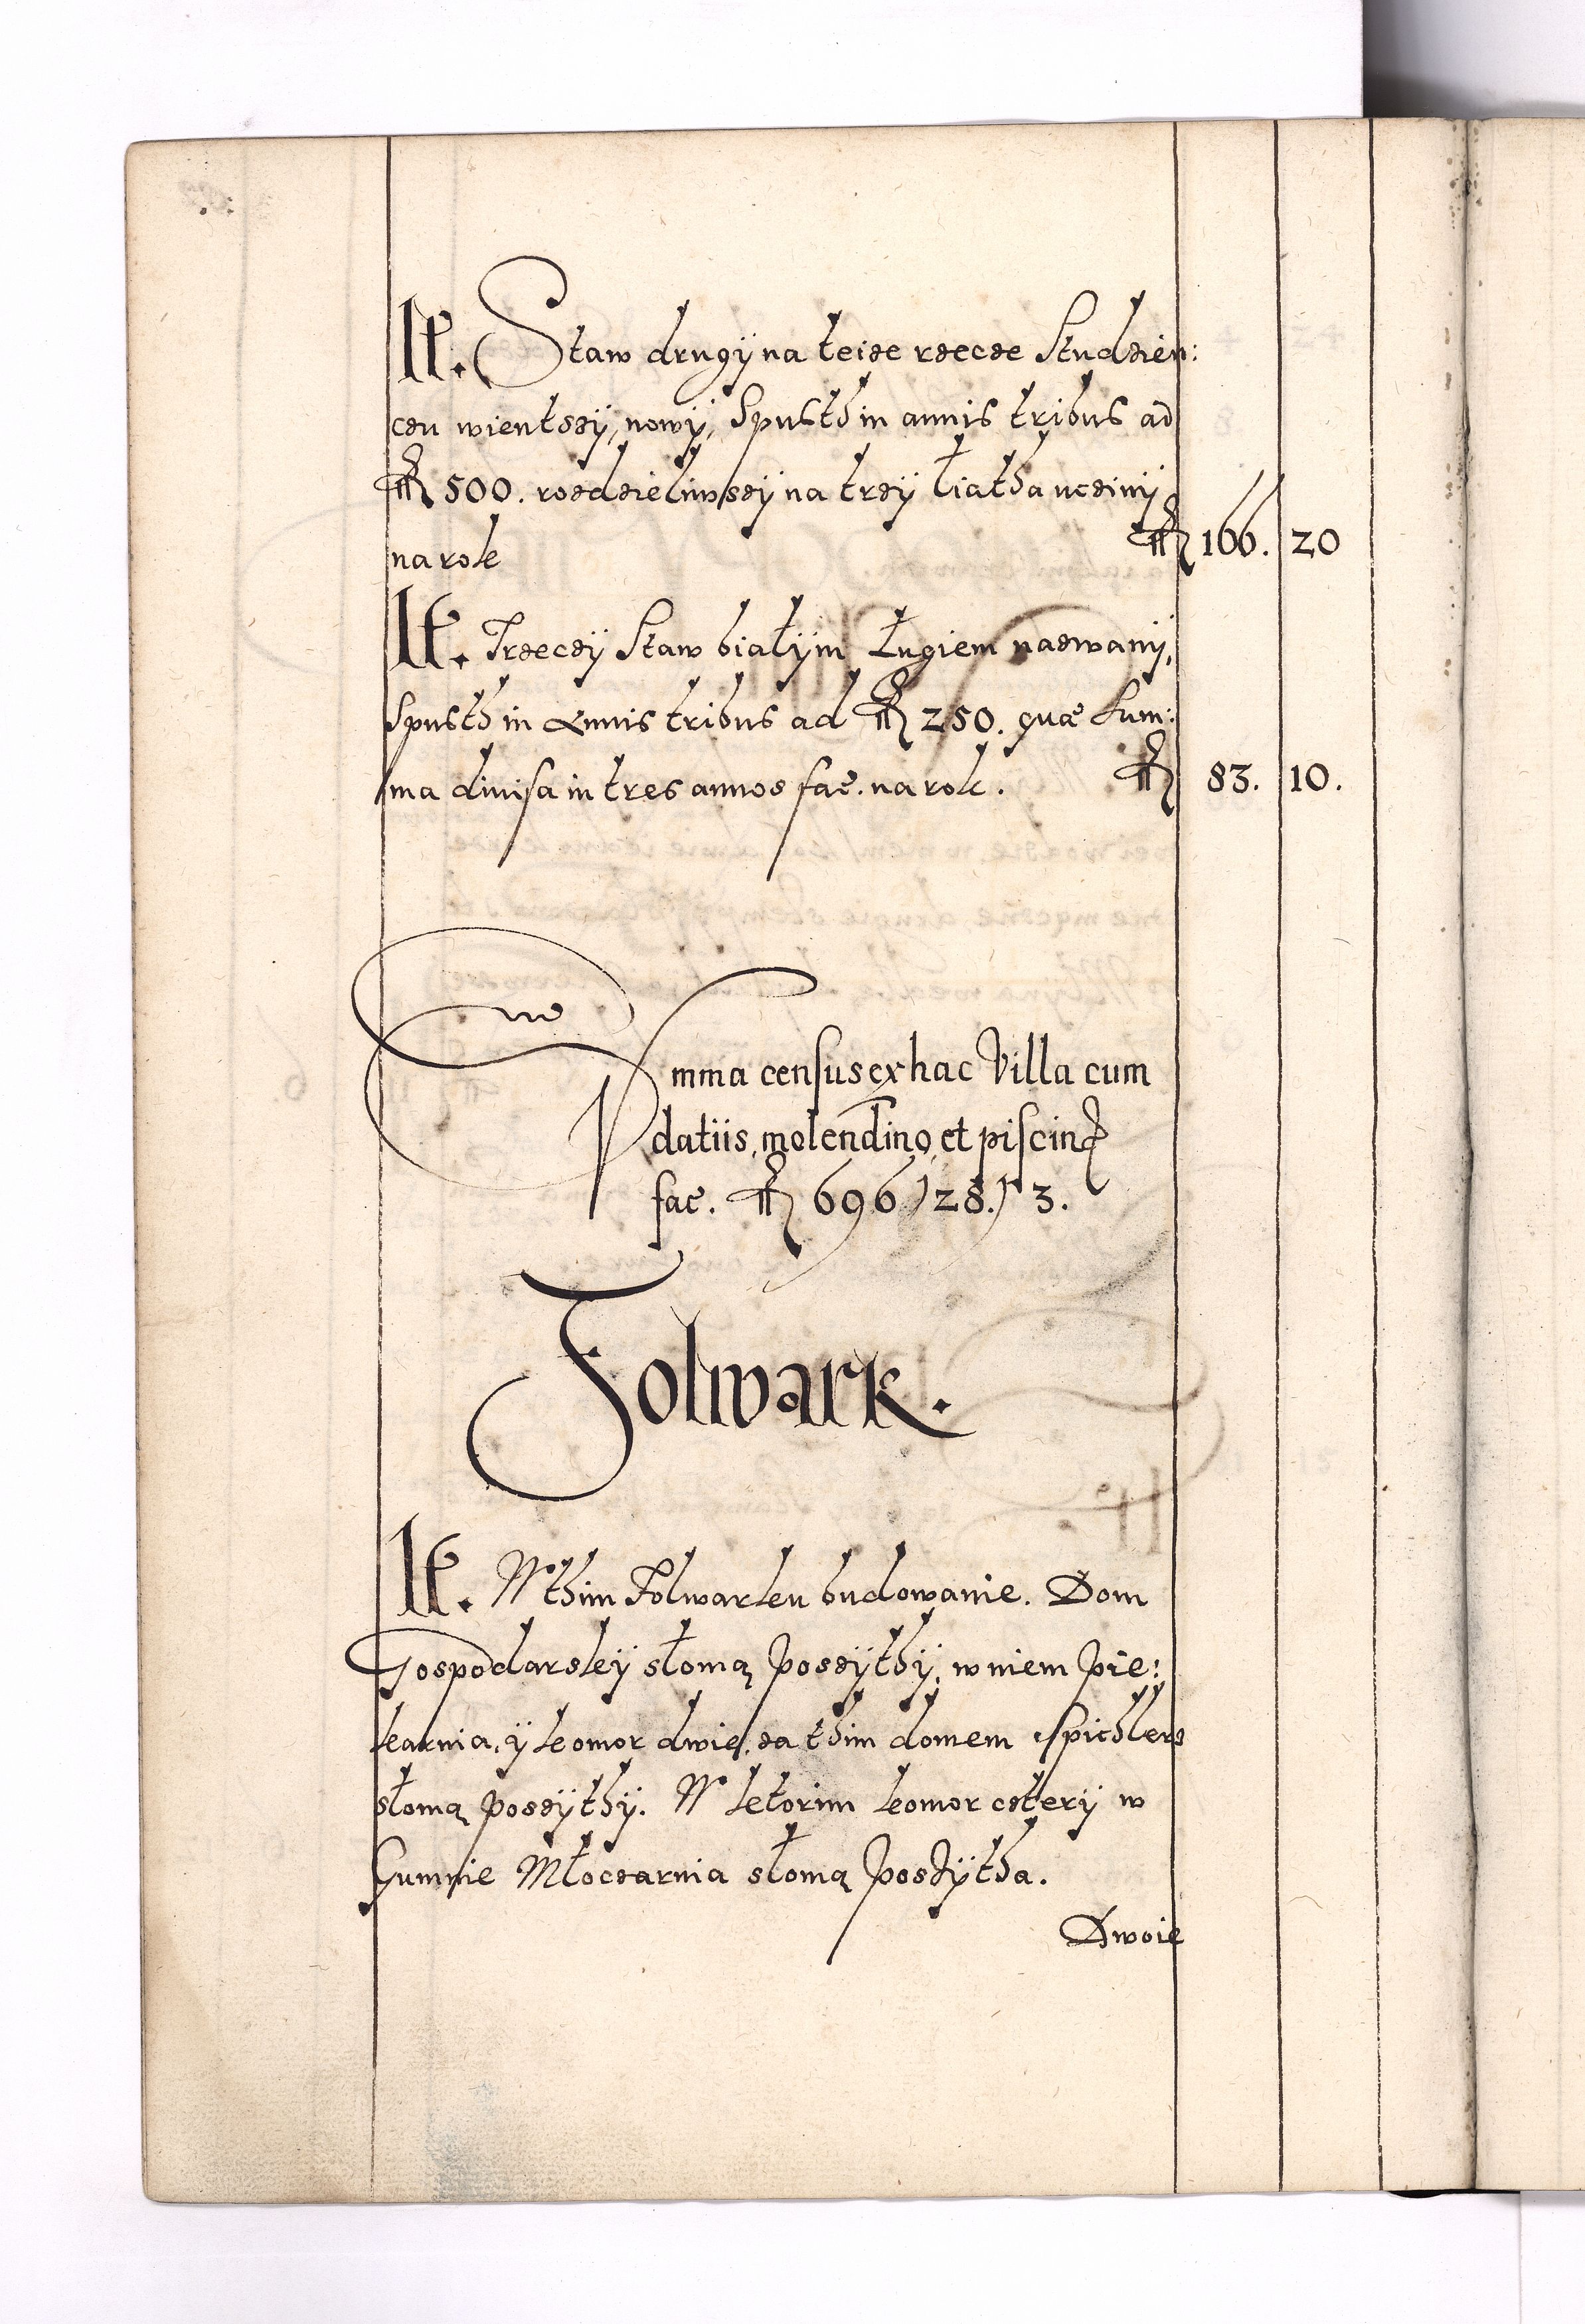 It. Staw drugÿ na teize rzecze Studzien:
czu wientszÿ, nowÿ, Spusth in annis tribus ad
fl 500. rozdzieliwszÿ na trzÿ liatha uczinÿ
na rok fl 166. 20
It. Trzeczÿ Staw białÿm Ługiem nazwanÿ,
Spusth in Annis tribus ad fl 250. quæ Sum:
ma divisa in tres annos fac. na rok. fl 83. 10.
Summa census ex hac Villa cum
datiis, molendino, et piscinis
fac. fl 696 / 28. / 3.
Folwark.
It. W thim Folwarku budowanie. Dom
Gospodarskÿ słomą poszÿthÿ, w niem pie:
karnia, ÿ komor dwie, za thim domem Spichlerz
słomą poszÿthÿ. W ktorim komor czterÿ w
Gumnie Młoczarnia słomą poszÿtha.
Dwoie